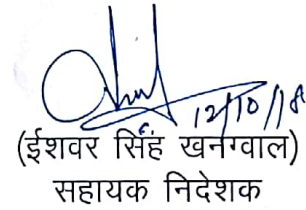 12/10/18
(ईशवर सिंह खनग्वाल)
सहायक निदेशक